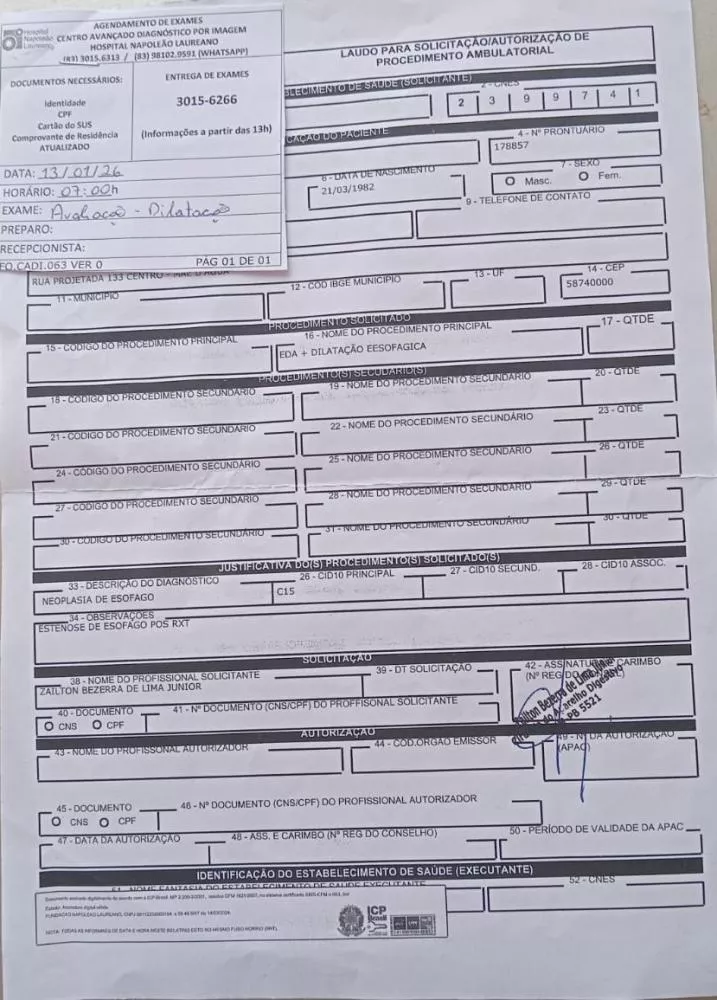 AGENDAMENTO DE EXAMES
Hospital Napoleão Laureano
CENTRO AVANÇADO DIAGNÓSTICO POR IMAGEM
HOSPITAL NAPOLEÃO LAUREANO
(83) 3015.6313 / (83) 98102.9591 (WHATSAPP)
DOCUMENTOS NECESSÁRIOS:
Identidade
CPF
Cartão do SUS
Comprovante de Residência
ATUALIZADO
ENTREGA DE EXAMES
3015-6266
(Informações a partir das 13h)
DATA: 13/01/26
HORÁRIO: 07:00h
EXAME: Avaliação - Dilatação
PREPARO:
RECEPCIONISTA:
FO.CADI.063 VER 0 PÁG 01 DE 01
LAUDO PARA SOLICITAÇÃO/AUTORIZAÇÃO DE
PROCEDIMENTO AMBULATORIAL
BELECIMENTO DE SAÚDE (SOLICITANTE)
2 - CNES
2 3 9 9 7 4 1
CAÇÃO DO PACIENTE
4 - Nº PRONTUÁRIO
178857
6 - DATA DE NASCIMENTO
21/03/1982
7 - SEXO
Masc. Fem.
9 - TELEFONE DE CONTATO
RUA PROJETADA 133 CENTRO - MAE D AGUA
11 - MUNICÍPIO
12 - COD IBGE MUNICÍPIO
13 - UF
14 - CEP
58740000
PROCEDIMENTO SOLICITADO
15 - CÓDIGO DO PROCEDIMENTO PRINCIPAL
16 - NOME DO PROCEDIMENTO PRINCIPAL
17 - QTDE
EDA + DILATAÇÃO EESOFAGICA
PROCEDIMENTO(S) SECUDÁRIO(S)
18 - CÓDIGO DO PROCEDIMENTO SECUNDÁRIO
19 - NOME DO PROCEDIMENTO SECUNDÁRIO
20 - QTDE
21 - CÓDIGO DO PROCEDIMENTO SECUNDÁRIO
22 - NOME DO PROCEDIMENTO SECUNDÁRIO
23 - QTDE
24 - CÓDIGO DO PROCEDIMENTO SECUNDÁRIO
25 - NOME DO PROCEDIMENTO SECUNDÁRIO
26 - QTDE
27 - CÓDIGO DO PROCEDIMENTO SECUNDÁRIO
28 - NOME DO PROCEDIMENTO SECUNDÁRIO
29 - QTDE
30 - CÓDIGO DO PROCEDIMENTO SECUNDÁRIO
31 - NOME DO PROCEDIMENTO SECUNDÁRIO
30 - QTDE
JUSTIFICATIVA DO(S) PROCEDIMENTO(S) SOLICITADO(S)
33 - DESCRIÇÃO DO DIAGNÓSTICO
26 - CID10 PRINCIPAL
27 - CID10 SECUND.
28 - CID10 ASSOC.
NEOPLASIA DE ESOFAGO
C15
34 - OBSERVAÇÕES
ESTENOSE DE ESOFAGO POS RXT
SOLICITAÇÃO
38 - NOME DO PROFISSIONAL SOLICITANTE
39 - DT SOLICITAÇÃO
42 - ASSINATURA CARIMBO
(Nº REG DO
ZAILTON BEZERRA DE LIMA JUNIOR
Zailton Bezerra de Lima Júnior
Aparelho Digestivo
PB 5521
40 - DOCUMENTO
CNS CPF
41 - Nº DOCUMENTO (CNS/CPF) DO PROFFISONAL SOLICITANTE
AUTORIZAÇÃO
43 - NOME DO PROFISSONAL AUTORIZADOR
44 - COD.ORGÃO EMISSOR
49 - Nº DA AUTORIZAÇÃO
(APAC)
45 - DOCUMENTO
CNS CPF
46 - Nº DOCUMENTO (CNS/CPF) DO PROFISSIONAL AUTORIZADOR
47 - DATA DA AUTORIZAÇÃO
48 - ASS. E CARIMBO (Nº REG DO CONSELHO)
50 - PERÍODO DE VALIDADE DA APAC
IDENTIFICAÇÃO DO ESTABELECIMENTO DE SAÚDE (EXECUTANTE)
51 - NOME FANTASIA DO ESTABELECIMENTO DE SAUDE EXECUTANTE
52 - CNES
ICP
Brasil